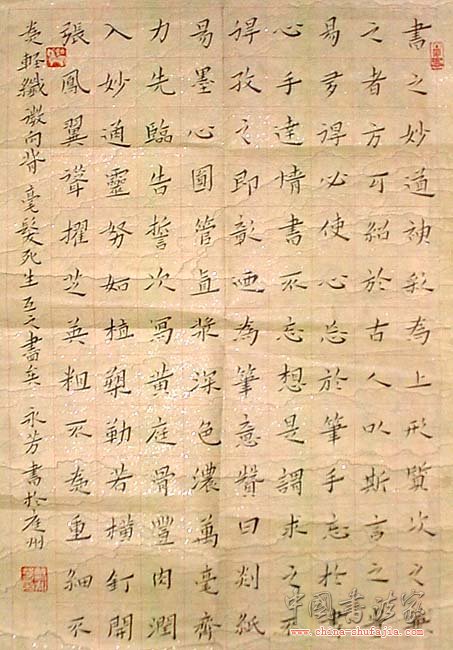 書之妙道神彩為上形質次之兼
之者方可紹於古人以斯言之豈
易多得必使心忘於筆手忘於書
心手達情書不忘想是謂求之不
得攷之即彰廼為筆意贊曰剡紙
易墨心圓管直漿深色濃萬毫齊
力先臨告誓次寫黃庭骨豐肉潤
入妙通靈努如植槊勒若橫釘開
張鳳翼聳擢芝英粗不為重細不
為輕纖微向背毫髮死生之矣 永芳書於州
中國書法家
www.china-shufajia.com